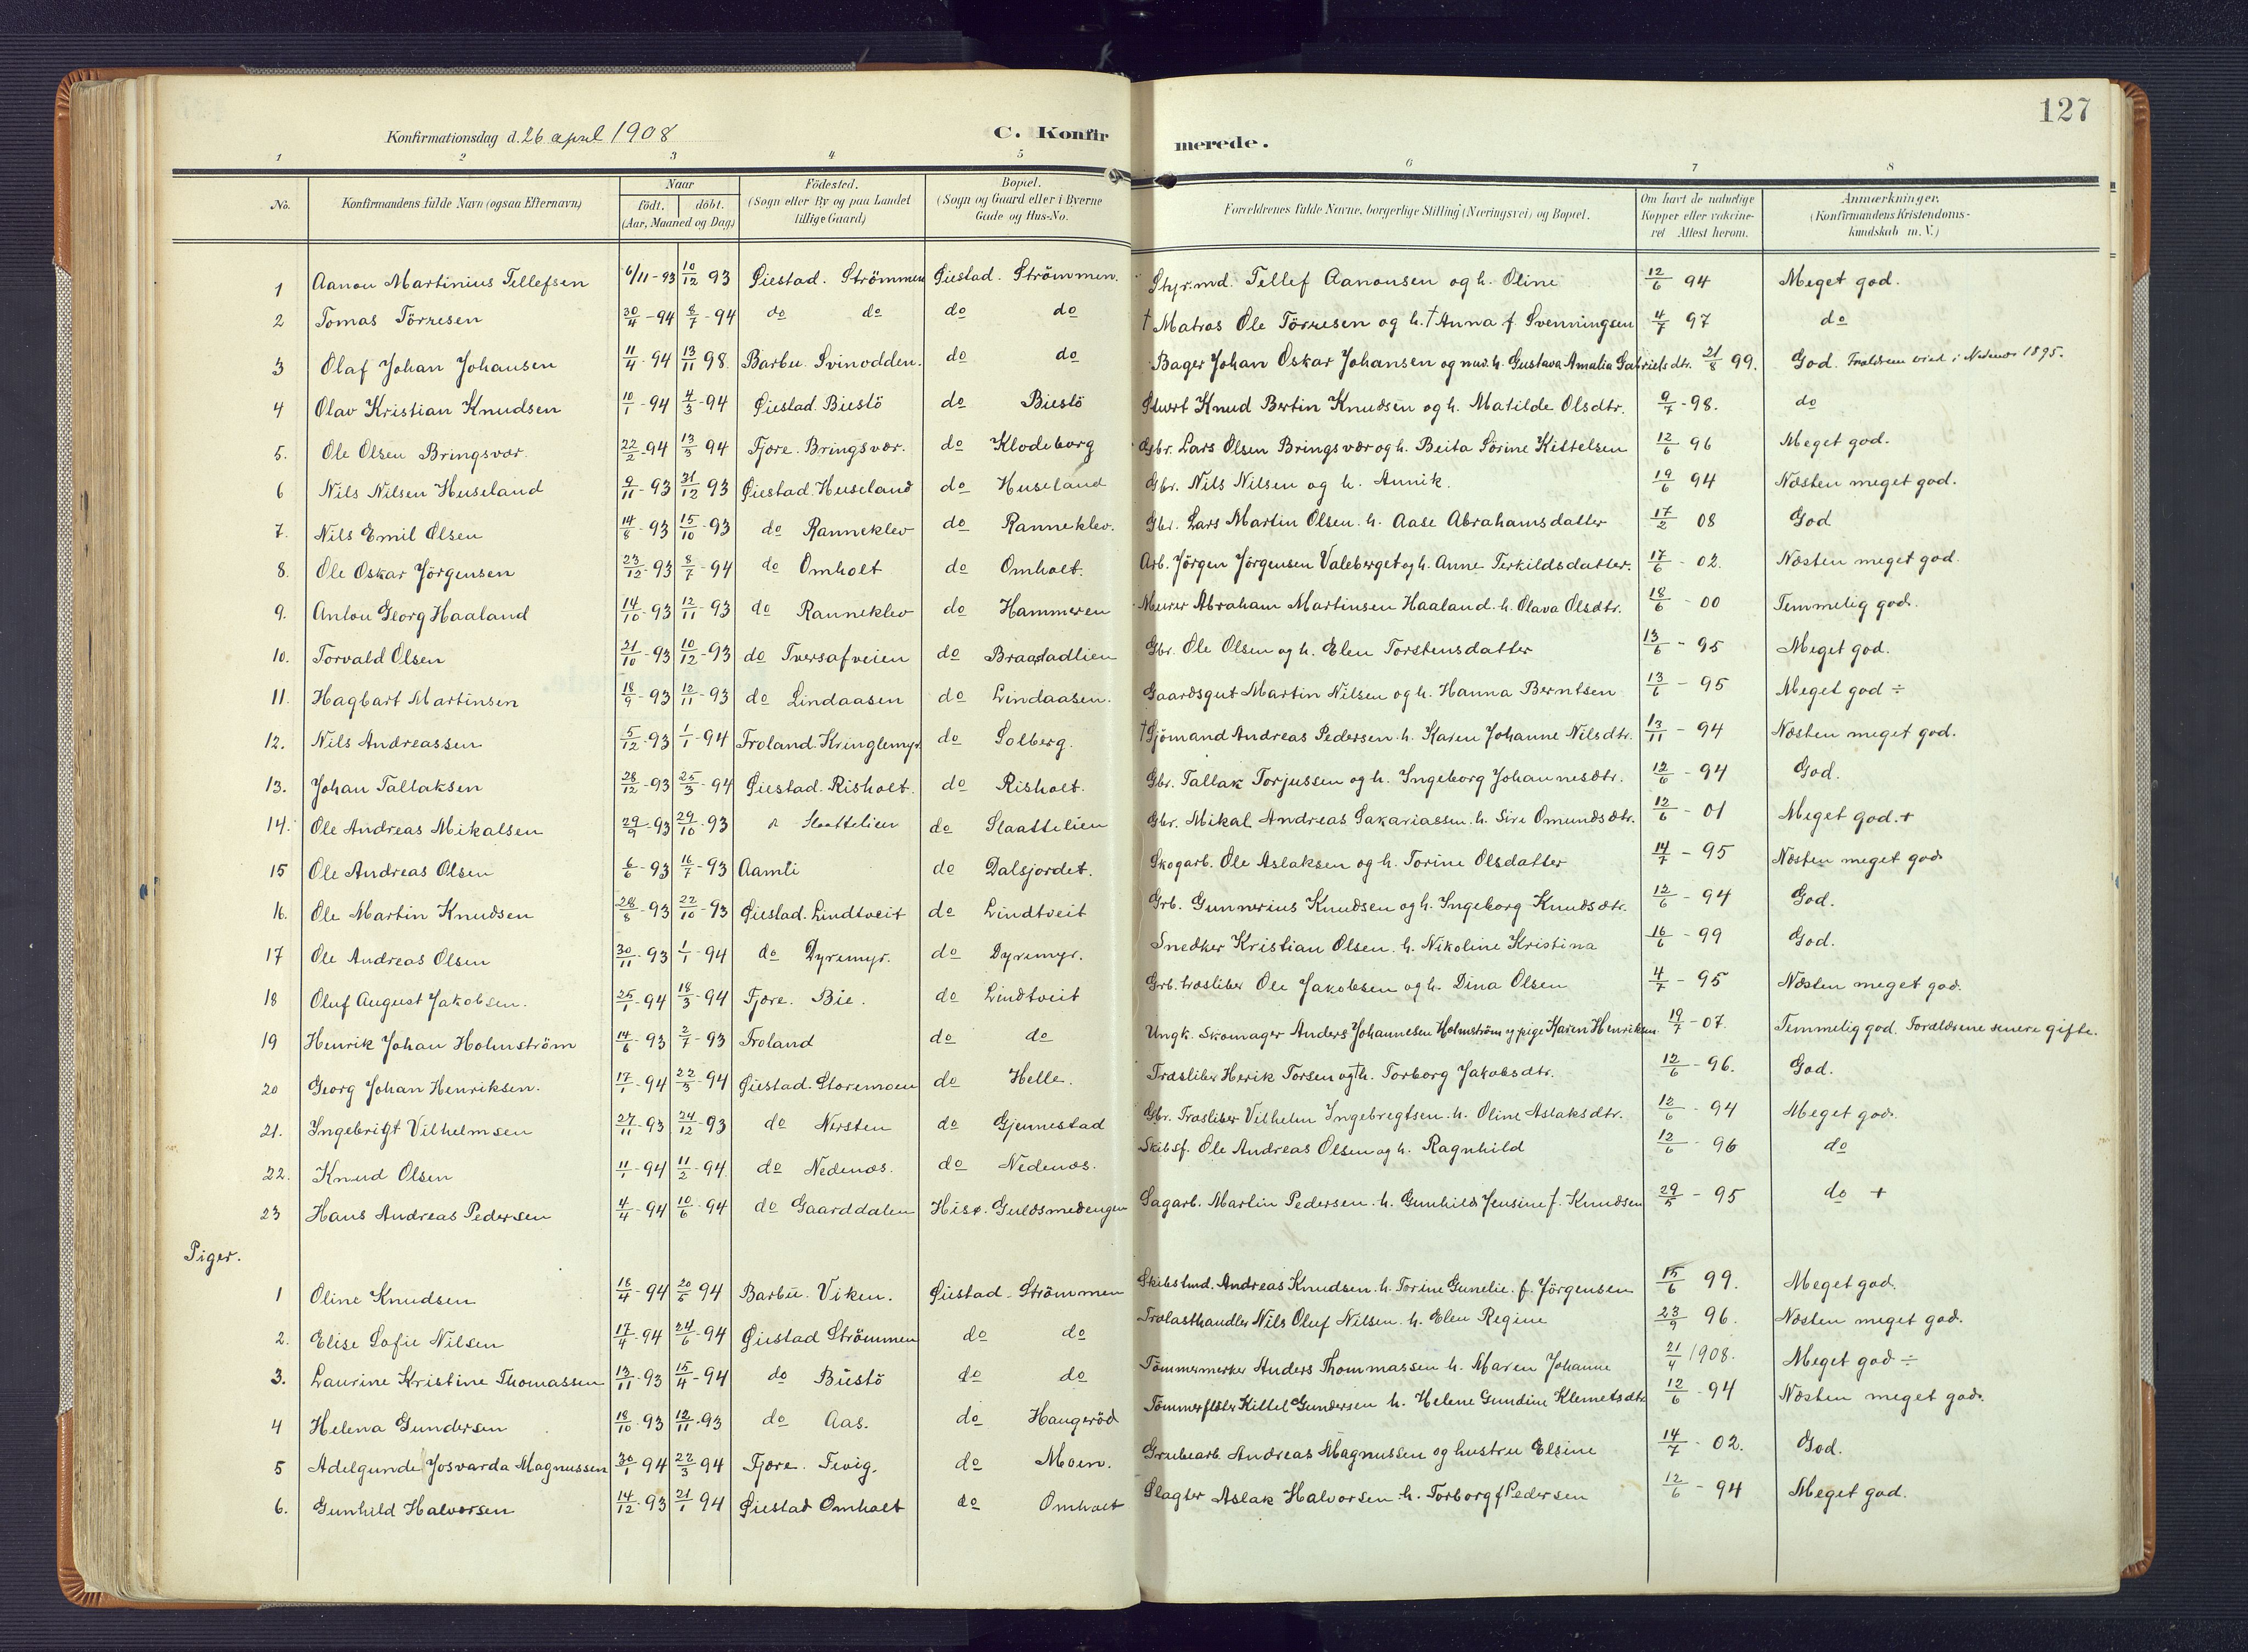 127
Konfirmationsdag d. 26 april 1908
C. Konfirmerede.
1 2 3 4 5 6 7 8
No. Konfirmandens fulde Navn (ogsaa Efternavn) Naar födt. döbt. (Aar, Maaned og Dag) Födested. (Sogn eller By og paa Landet tillige Gaard) Bopæl. (Sogn og Gaard eller i Byerne Gade og Hus-No. Forældrenes fulde Navne, borgerlige Stilling (Næringsvei) og Bopæl. Om havt de naturlige Kopper eller vakcineret Attest herom. Anmærkninger. (Konfirmandens Kristendomskundskab m. V.)
1 Aanon Martinius Tellefsen 6/11-93 10/12 93 Øiestad. Strömmen Øiestad. Strömmen. Styrmd. Tellef Aanonsen og h. Oline 12/6 94 Meget god.
2 Tomas Törresen 30/4-94 8/7-94 do do do do † Matros Ole Törresen og h. † Anna f. Svenningsen 4/7 97 do
3 Olaf Johan Johansen 11/4 94 13/11 98. Barbu. Svinodden. do do Bager Johan Oskar Johansen og nuv. h. Gustava Amalia Gabrielsdtr. 21/8 99. God. Forældrene viet i Nedenes 1895.
4 Olav Kristian Knudsen 10/1-94 4/3-94 Øiestad. Biestö do Biestö Stuert Knud Bertin Knudsen og h. Matilde Olsdtr. 9/7-98. do
5. Ole Olsen Bringsvær. 22/2-94 13/5 94 Fjære. Bringsvær. do Klodeborg Gbr. Lars Olsen Bringsvær og h. Beita Sörine Kittelsen 12/6 96 Meget god.
6 Nils Nilsen Huseland 9/11-93 31/12 93 Øiestad. Huseland do Huseland Gbr. Nils Nilsen og h. Annik. 19/6 94 Næsten meget god.
7. Nils Emil Olsen 14/8-93 15/10-93 do Ranneklev do Ranneklev. Gbr. Lars Martin Olsen. h. Aase Abrahamsdatter 17/2 08 God
8. Ole Oskar Jörgensen 23/12-93 8/7-94 do Omholt do Omholt. Arb. Jörgen Jörgensen Valeberget og h. Anne Terkildsdatter. 17/6-02. Næsten meget god.
9. Anton Georg Haaland 14/10-93 12/11-93 do Ranneklev do Hammeren Murer Abraham Martinsen Haaland. h. Olava Olsdtr. 18/6-00 Temmelig god.
10. Torvald Olsen 21/10-93 10/12-93 do Tversafveien do Braastadlien Gbr. Ole Olsen og h. Elen Torstensdatter 13/6-95 Meget god.
11. Hagbart Martinsen 18/9-93 12/11-93 do Lindaasen do Lindaasen. Gaardsgut Martin Nilsen og h. Hanna Berntsen 13/6-95 Meget god ÷
12. Nils Andreassen 5/12-93 1/1-94 Froland. Kringlemyr. do Solberg. † Sjömand Andreas Pedersen. h. Karen Johanne Nilsdtr. 13/11-94 Næsten meget god.
13. Johan Tallaksen 28/12-93 25/3-94 Øiestad. Risholt. do Risholt. Gbr. Tallak Torjussen og h. Ingeborg Johannesdtr. 12/6-94 God.
14. Ole Andreas Mikalsen 29/9-93 29/10-93 Slaattelien do Slaattelien Gbr. Mikal Andreas Sakariassen. h. Sire Omundsdtr. 12/6-01 Meget god. +
15 Ole Andreas Olsen 6/6-93 16/7-93 Aamli do Dalsjordet. Skogarb. Ole Aslaksen og h. Torine Olsdatter 14/7-95 Næsten meget god.
16. Ole Martin Knudsen 28/8-93 22/10-93 Øiestad. Lindtveit do Lindtveit Grb. Gunnerius Knudsen og h. Ingeborg Knudsdtr. 12/6-94 God.
17 Ole Andreas Olsen 30/11-93 1/1-94 do Dyremyr. do Dyremyr. Snedker Kristian Olsen. h. Nikoline Kristina 16/6-99 God.
18 Oluf August Jakobsen. 25/1-94 18/3-94 Fjære. Bie. do Lindtveit Grb. træsliber Ole Jakobsen og h. Dina Olsen 4/7-95 Næsten meget god.
19 Henrik Johan Holmström 14/6-93 2/7-93 Froland do do Ungk. Skomager Anders Johannesen Holmström og pige Karen Henriksen. 19/7-07. Temmelig god. Forældrene senere gifte.
20 Georg Johan Henriksen. 17/1-94 22/5-94 Øiestad. Storemoen do Helle. Træsliber Herik Torsen og † h. Torborg Jakobsdtr. 12/6-96. God.
21. Ingebrigt Vilhelmsen 27/11-93 24/12-93 do Nersten do Gjennestad Gbr. Træsliber Vilhelm Ingebregtsen. h. Oline Aslaksdtr. 12/6-94 Meget god.
22. Knud Olsen 11/1-94 11/2-94. do Nedenæs. do Nedenæs. Skibsf. Ole Andreas Olsen og h. Ragnhild 12/6-96 do
23 Hans Andreas Pedersen 4/4-94 10/6-94 do Gaarddalen Hisø. Guldsmedengen Sagarb. Martin Pedersen. h. Gunhild Jensine f. Knudsen 29/5-95 do +
Piger.
1 Oline Knudsen 18/4-94 20/5 94 Barbu. Viken. Øiestad. Strömmen Skibstmd. Andreas Knudsen. h. Torine Gunelie. f. Jörgensen 15/6 99. Meget god.
2. Elise Sofie Nilsen 17/4-94 24/6-94 Øiestad Strömmen do do Trælasthandler Nils Oluf Nilsen. h. Elen Regine 23/9 96. Næsten meget god.
3. Laurine Kristine Thomassen 13/11-93 15/4-94 do Biestö do do Tömmermerker Anders Thommassen h. Maren Johanne 21/4 1908. Meget god ÷
4 Helena Gundersen 18/10-93 12/11-93 do Aas. do Haugeröd Tömmerfløter Kittel Gundersen h. Helene Gundine Klemetsdtr. 12/6-94 Næsten meget god.
5 Adelgunde Josvarda Magnussen 30/1 94 22/3 94 Fjære. Fevig. do Moen. Grubearb. Andreas Magnussen og hustru Elsine 14/7-02. God.
6. Gunhild Halvorsen 14/12-93 21/1 94 Øiestad Omholt do Omholt Slagter Aslak Halvorsen. h. Torborg f Pedersen 12/6-94 Meget god.